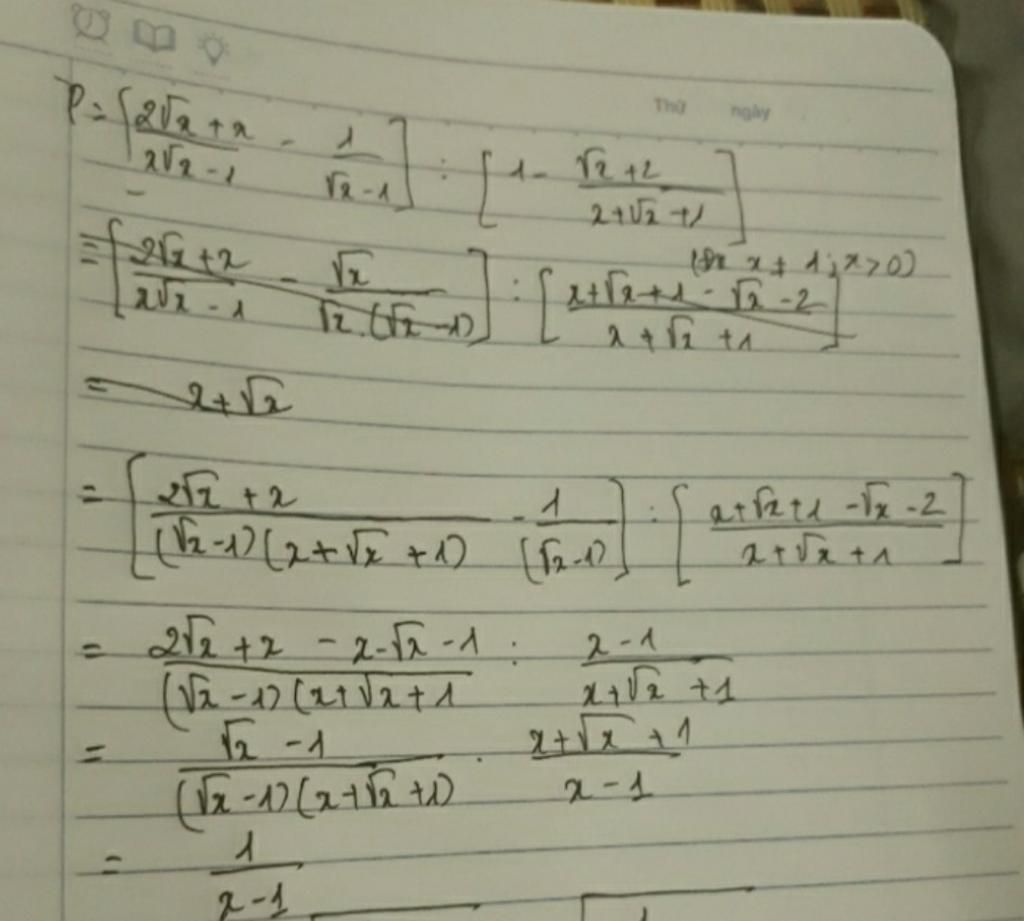 Thứ ngày
P = [(2√x + x)/(x√x - 1) - 1/(√x - 1)] : [1 - (√x + 2)/(x + √x + 1)]
= [(2√x + x)/(x√x - 1) - √x/(√x.(√x - 1))] : [(x + √x + 1 - √x - 2)/(x + √x + 1)] (Đk x ≠ 1; x > 0)
= x + √x
= [(2√x + x)/((√x - 1)(x + √x + 1)) - 1/(√x - 1)] : [(x + √x + 1 - √x - 2)/(x + √x + 1)]
= (2√x + x - x - √x - 1)/((√x - 1)(x + √x + 1 : (x - 1)/(x + √x + 1)
= (√x - 1)/((√x - 1)(x + √x + 1)) . (x + √x + 1)/(x - 1)
= 1/(x - 1)